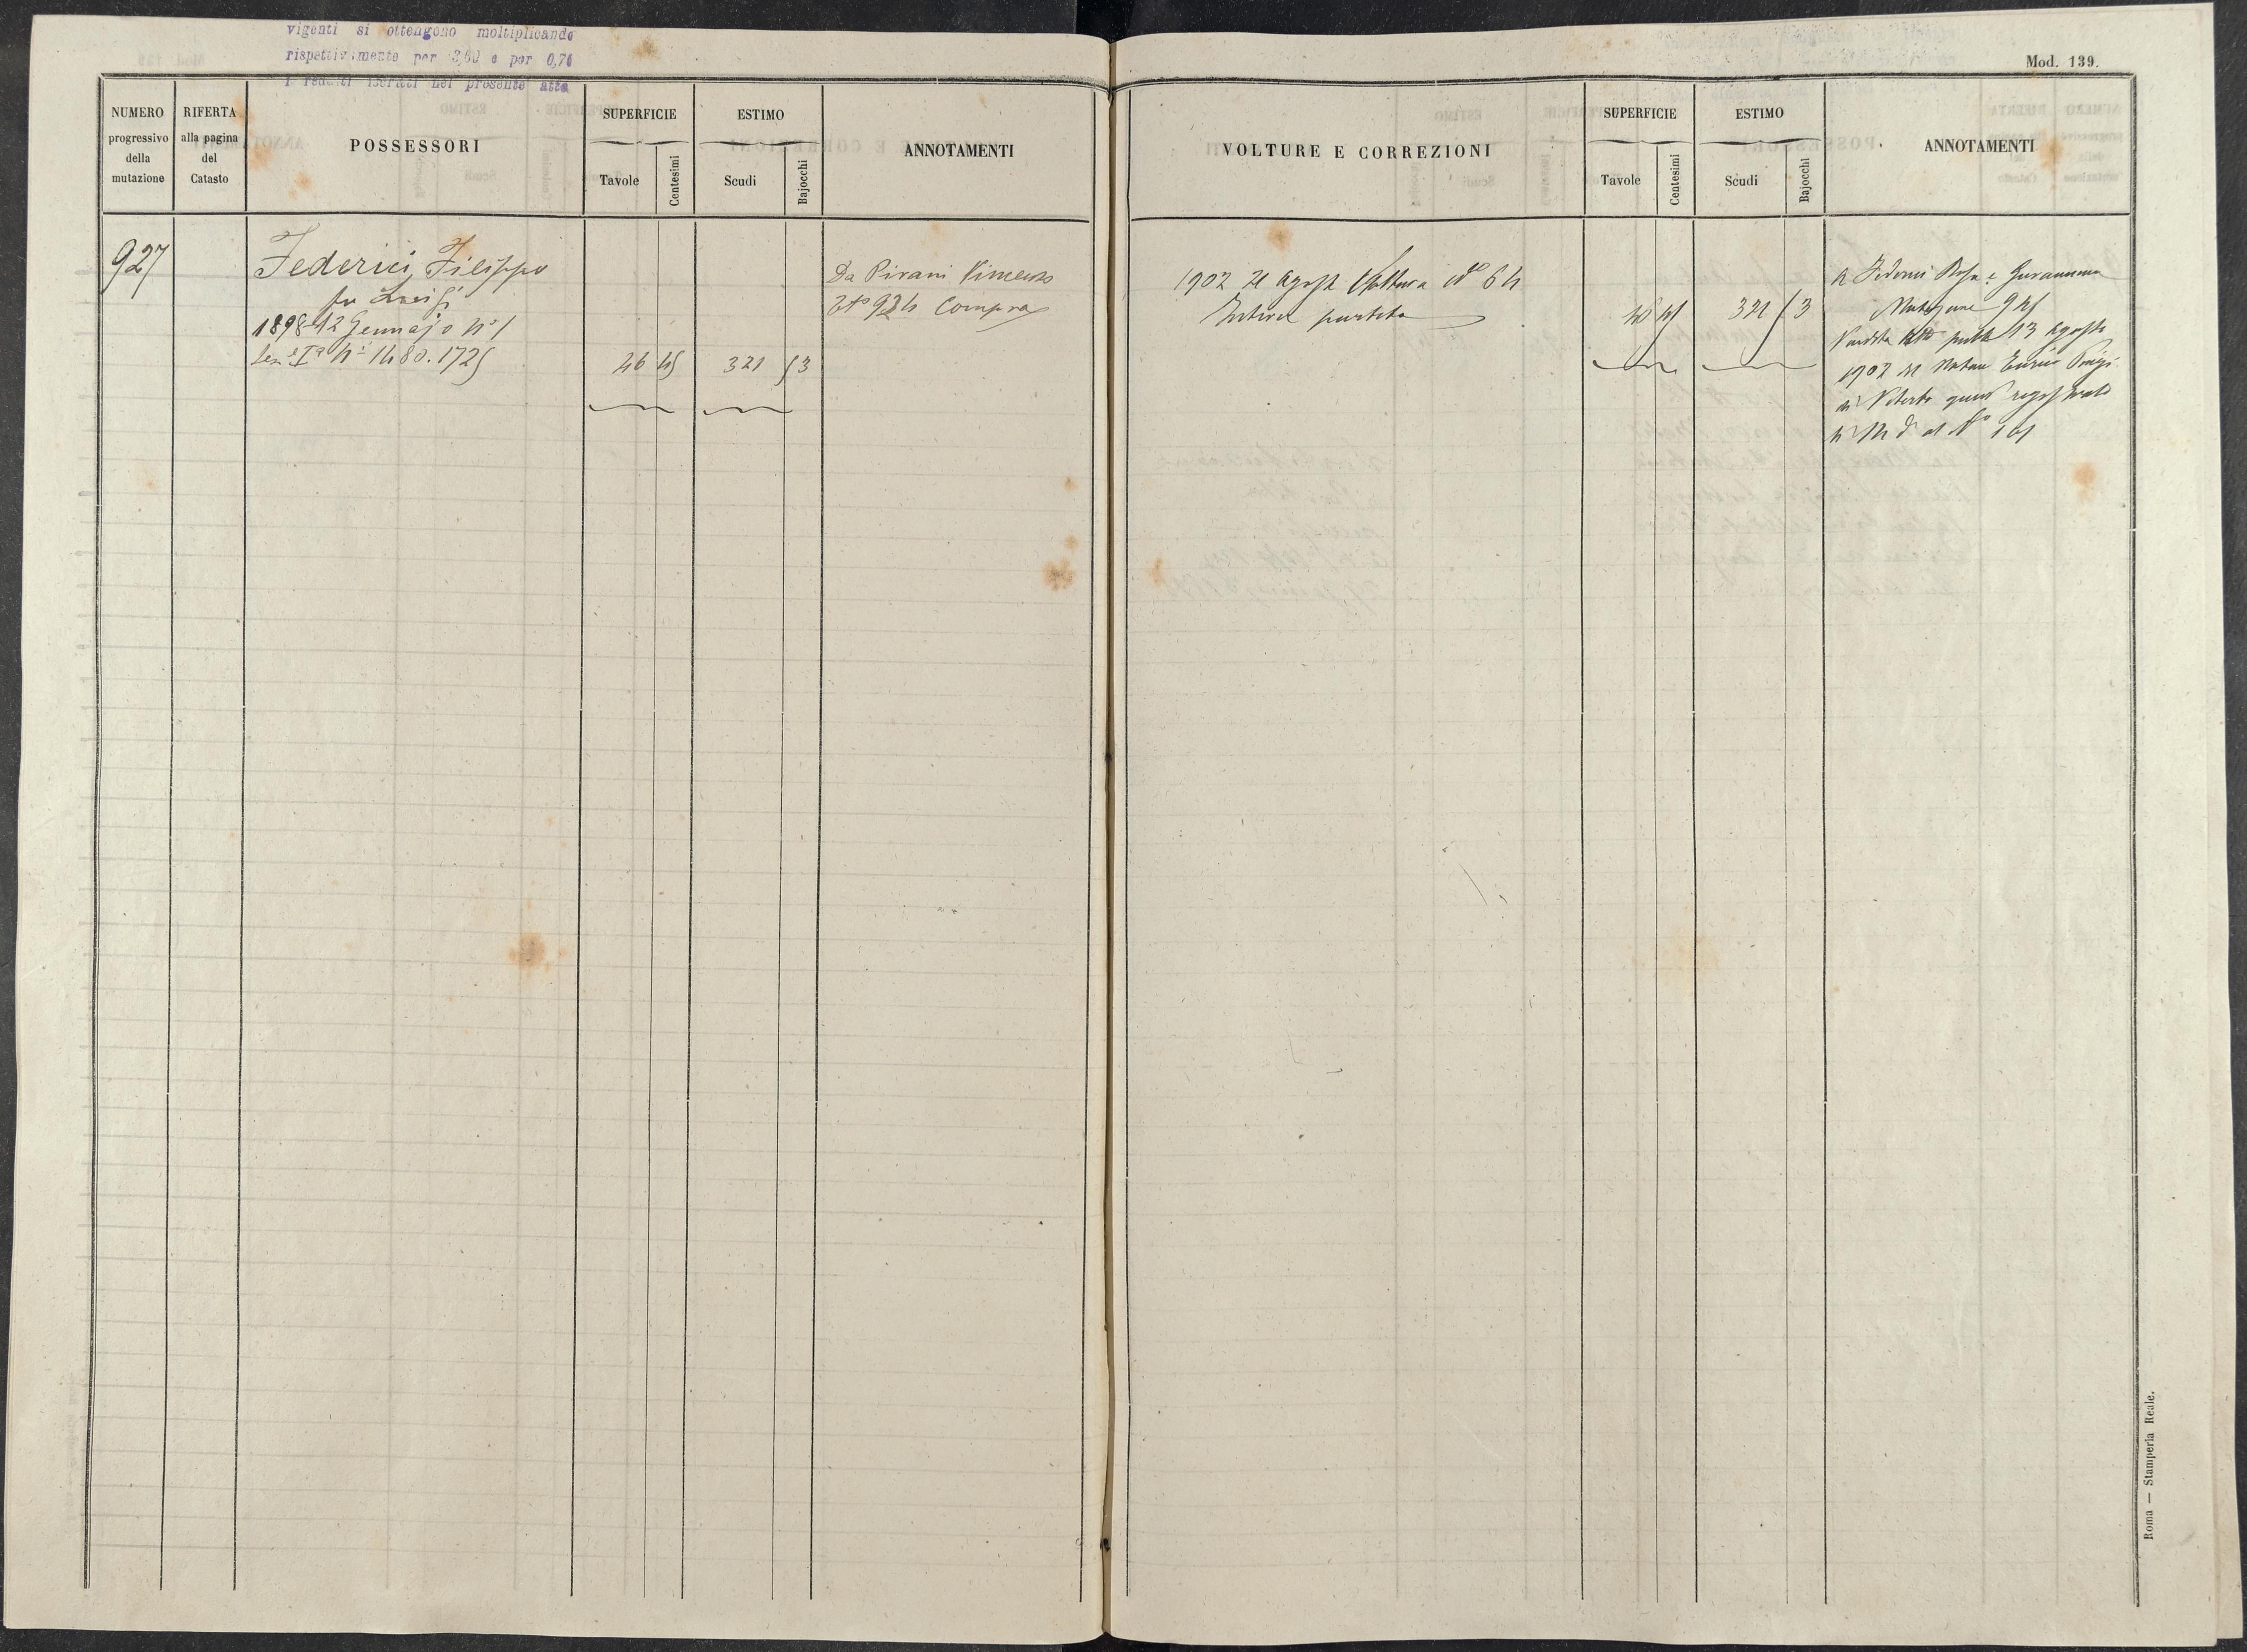 vigenti si ottengono moltiplicando
rispettivamente per 3,60 e per 0,76
i redditi iscritti nel presente atto
Mod. 139.
NUMERO progressivo della mutazione
RIFERTA alla pagina del Catasto
POSSESSORI
SUPERFICIE
Tavole
Centesimi
ESTIMO
Scudi
Bajocchi
ANNOTAMENTI
VOLTURE E CORREZIONI
SUPERFICIE
Tavole
Centesimi
ESTIMO
Scudi
Bajocchi
ANNOTAMENTI
927
Federici Filippo
fu Luigi
1898-12 Gennajo Nº 1
Sez.e Iª Nⁱ 1480. 1725
46 45 321 53
Da Pirani Vincenzo
924 Compra
1902 21 Agost Voltura Nº 64
Intera partita
46 45 321 53
A Federici Rosa e Giovanna
Mutazione 945
Vendita pubb 13 Agosto
1902 Enrico
di Viterbo quivi registrato
al Nº 161
Roma — Stamperia Reale.